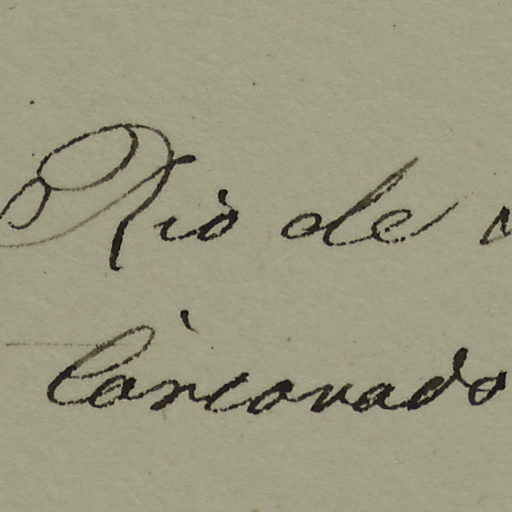 Rio de
Corcovado